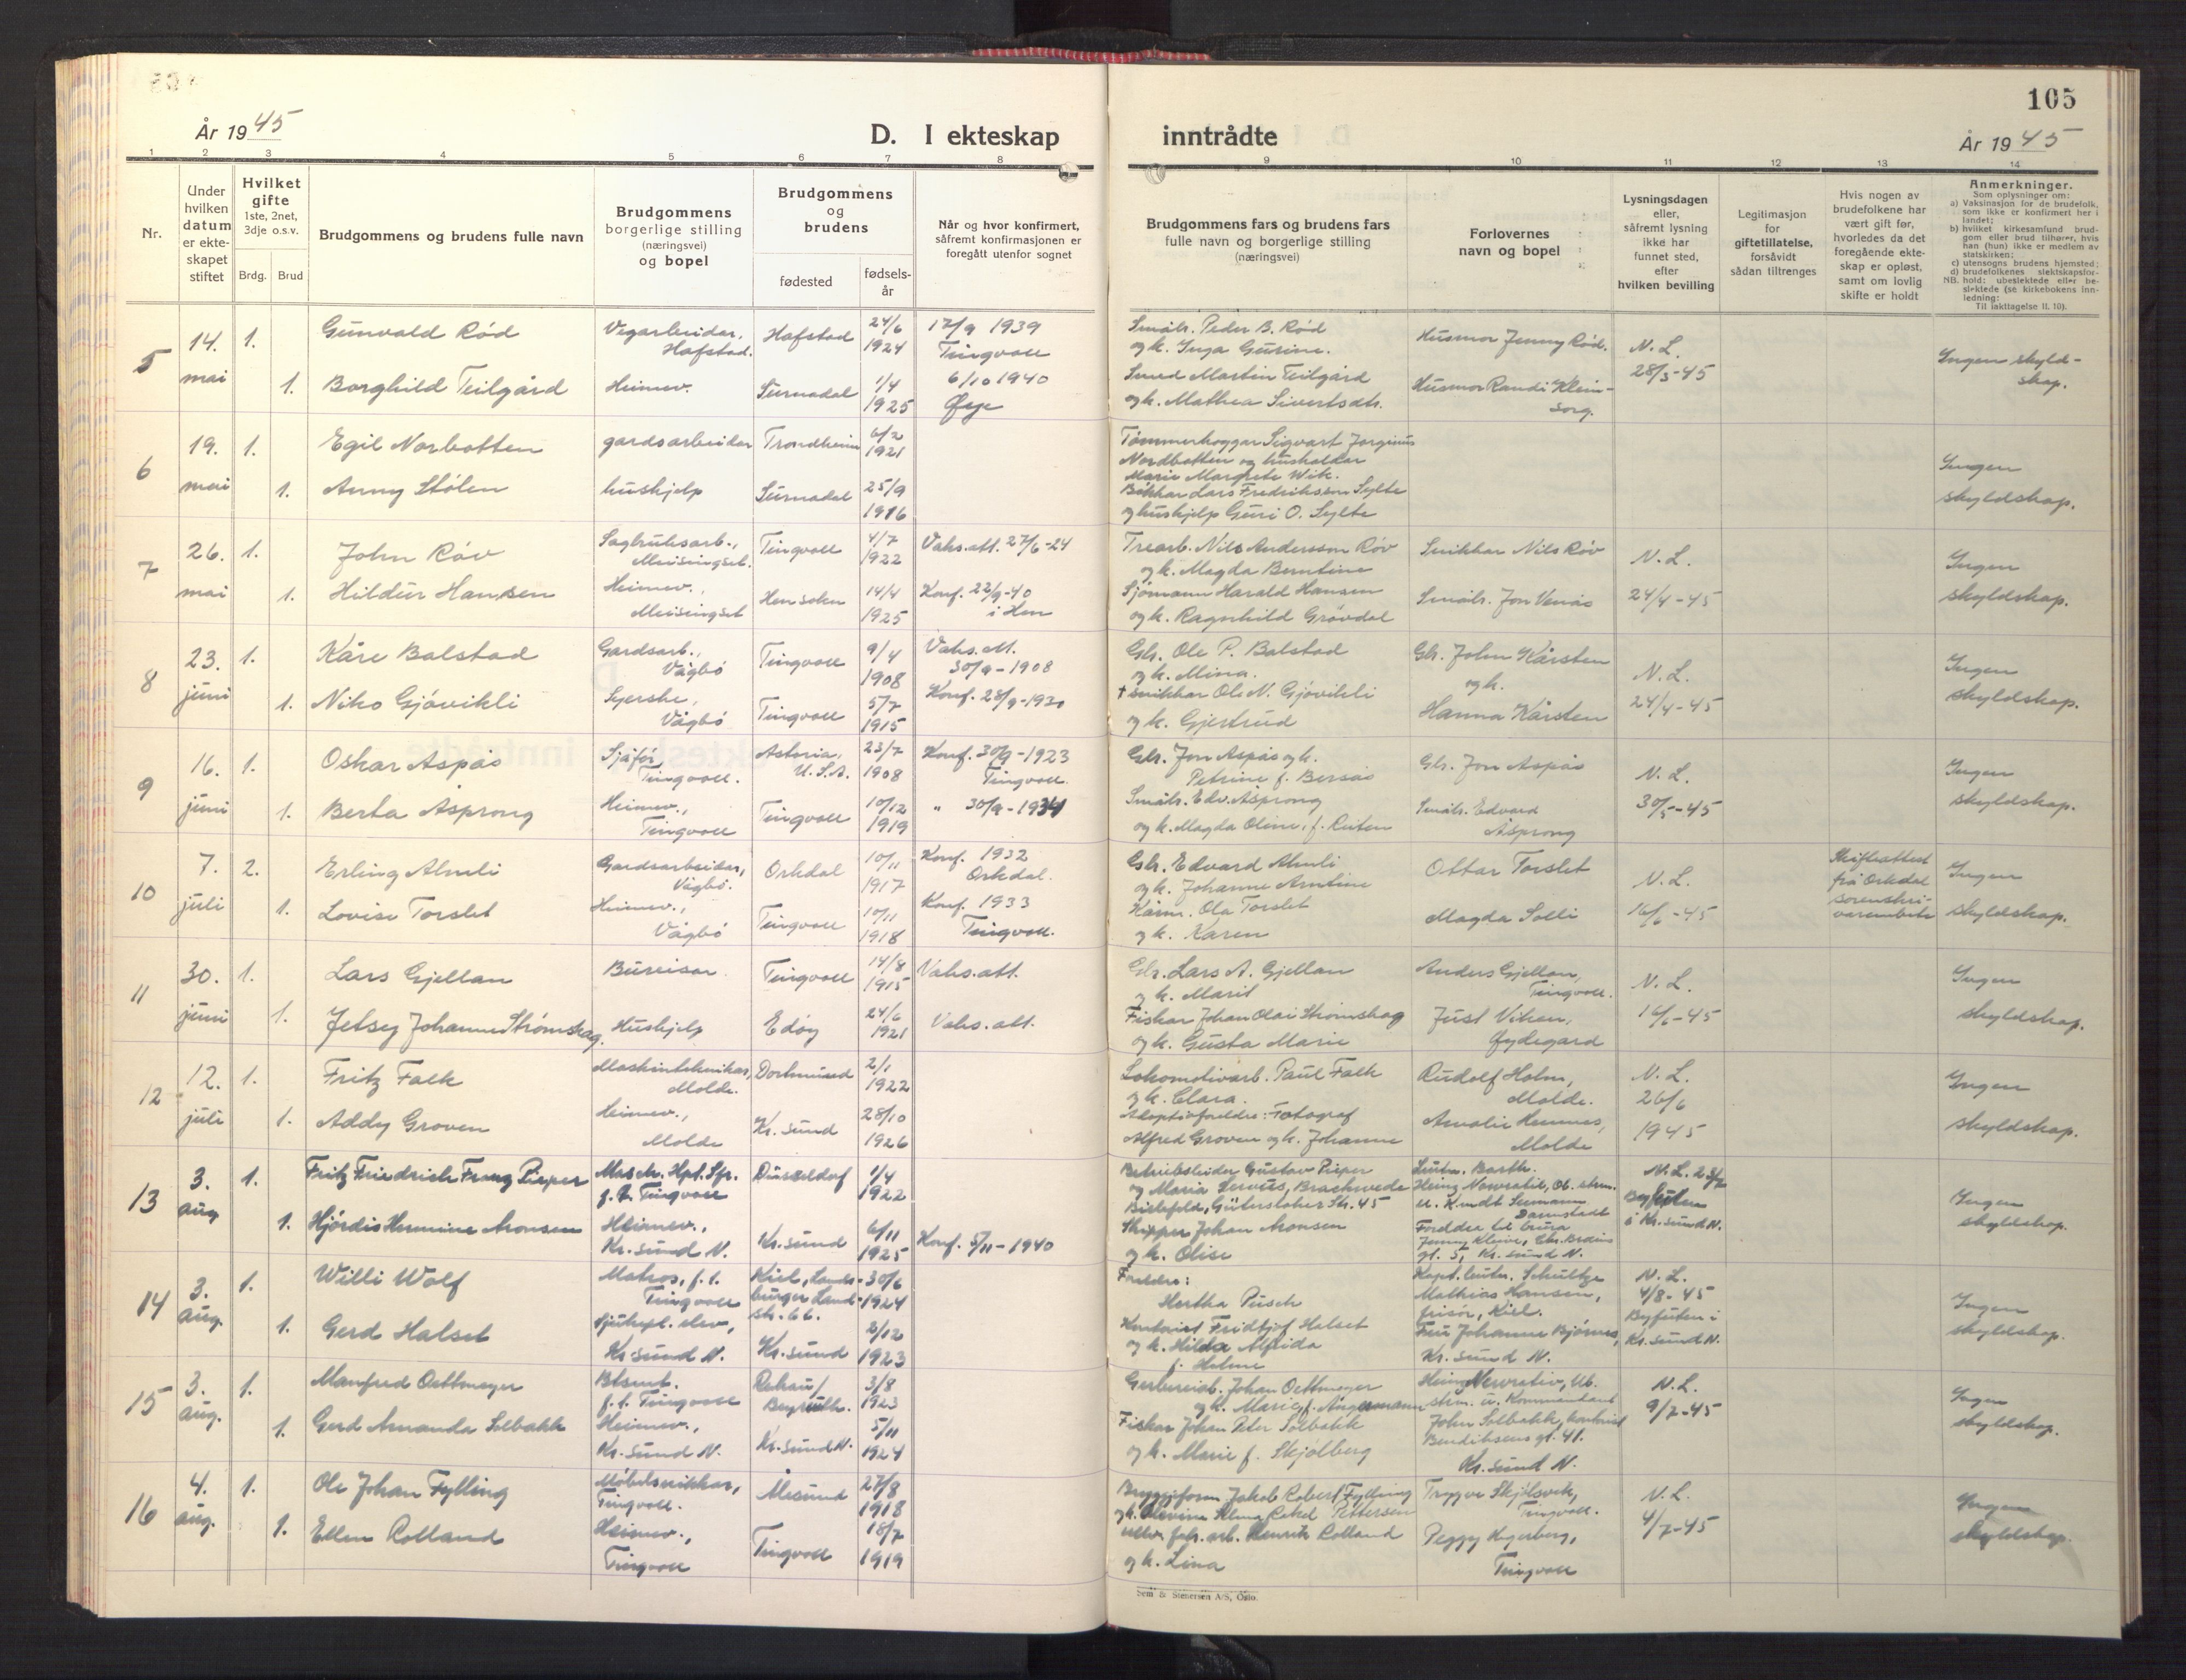 105
År 1945
D. I ekteskap inntrådte
År 1945
1 2 3 4 5 6 7 8 9 10 11 12 13 14
Nr.
Under hvilken datum er ekteskapet stiftet
Hvilket gifte
1ste, 2net, 3dje o.s.v.
Brdg. Brud
Brudgommens og brudens fulle navn
Brudgommens borgerlige stilling (næringsvei) og bopel
Brudgommens og brudens
fødested
fødsels-år
Når og hvor konfirmert, såfremt konfirmasjonen er foregått utenfor sognet
Brudgommens fars og brudens fars fulle navn og borgerlige stilling (næringsvei)
Forlovernes navn og bopel
Lysningsdagen eller, såfremt lysning ikke har funnet sted, efter hvilken bevilling
Legitimasjon for giftetillatelse, forsåvidt sådan tiltrenges
Hvis nogen av brudefolkene har vært gift før, hvorledes da det foregående ekteskap er opløst, samt om lovlig skifte er holdt
Anmerkninger.
Som oplysninger om:
a) Vaksinasjon for de brudefolk, som ikke er konfirmert her i landet;
b) hvilket kirkesamfund brudgom eller brud tilhører, hvis han (hun) ikke er medlem av statskirken;
c) utensogns brudens hjemsted;
d) brudefolkenes slektskapsforhold: ubeslektede eller beslektede (se kirkebokens innledning:
NB.
Til iakttagelse II. 10).
5 14. mai 1. Gunvald Rød Vegarbeider, Hofstad. Hafstad 24/6 1924 17/9 1939 Tingvoll
Småbr. Peder B. Rød og k. Inga Gurine. Husmor Jenny Rød. N. L. 28/3-45 Ingen skyldskap.
1. Borghild Teilgård Heimev. Surnadal 1/4 1925 6/10 1940 Øye
Smed Martin Teilgård og k. Mathea Sivertsdtr. Husmor Randi Kleinsorg.
6 19. mai 1. Egil Norbotten gardsarbeider Trondheim 6/2 1921
Tømmerhoggar Sigvart Jorginus Nordbotten og husholdar Marie Margrete Wik. Ingen skyldskap.
1. Anny Stølen hushjelp Surnadal 25/9 1916
Lars Fredriksson Sylte og hushjelp Guri O. Sylte
7 26. mai 1. John Røv Sagbruksarb., Meisingset. Tingvoll 4/7 1922 Vaks.att. 27/6-24
Trearb. Nils Andersson Røv og k. Magda Berntine Snikkar Nils Røv N. L. 24/4-45 Ingen skyldskap.
1. Hildur Hansen Heimev., Meisingset Hen sokn 14/4 1925 Konf. 22/9-40 i Hen
Sjømann Harald Hansen og k. Ragnhild Grøvdal Småbr. Jon Venås
8 23. juni 1. Kåre Balstad Gardsarb., Vågbø Tingvoll 9/4 1908 Vaks.att. 30/9-1908
Gbr. Ole P. Balstad og k. Mina. Gbr. John Kårsten og k. Hanna Kårsten N. L. 24/4-45 Ingen skyldskap.
1. Niko Gjøvikli Syerske, Vågbø Tingvoll 5/7 1915 Konf. 28/9-1930
† snikkar Ole N. Gjøvikli og k. Gjertrud
9 16. juni 1. Oskar Aspås Sjåfør, Tingvoll. Astoria, U.S.A. 23/7 1908 Konf. 30/9-1923 Tingvoll.
Gbr. Jon Aspås og k. Petrine f. Bersås Gbr. Jon Aspås N. L. 30/5-45 Ingen skyldskap.
1. Berta Asprong Heimev., Tingvoll Tingvoll 10/12 1919 " 30/9-1934
Småbr. Edv. Asprong og k. Magda Oline, f. Reiten Småbr. Edvard Asprong
10 7. juli 2. Erling Almli Gardsarbeider, Vågbø. Orkdal 10/11 1917 Konf. 1932 Orkdal.
Gbr. Edvard Almli og k. Johanne Arntine Ottar Torslet N. L. 16/6-45 Skifteattest frå Orkdal sorenskrivarembete Ingen skyldskap.
1. Lovise Torslet Heimev., Vågbø Tingvoll 10/11 1918 Konf. 1933 Tingvoll.
Kårm. Ola Torslet og k. Karen Magda Solli
11 30. juni 1. Lars Gjellan Bureisar Tingvoll 14/8 1915 Vaks.att.
Gbr. Lars A. Gjellan og k. Marit Anders Gjellan, Tingvoll. N. L. 16/6-45 Ingen skyldskap.
1. Jetsey Johanne Strømskag. Hushjelp Edøy 24/6 1921 Vaks.att.
Fiskar Johan Olai Strømskag og k. Gusta Marie Just Viken, Øydegard
12 12. juli 1. Fritz Falk Maskintekniker, Molde. Dortmund 2/1 1922
Lokomotivarb. Paul Falk og k. Clara. Rudolf Holm, Molde. N. L. 26/6 1945 Ingen skyldskap.
1. Addy Groven Heimev., Molde Kr. sund 28/10 1926
Adoptivforeldre: Fotograf Alfred Groven og k. Johanne Amalie Hennes, Molde
13 3. aug 1. Fritz Friedrich Franz Pieper Masch. Hpt. Gfr. f. t. Tingvoll Düsseldorf 1/4 1922
Betriebsleider Gustav Pieper og Maria Servus, Brackwede Bielefeld, Gütersloher Str. 45 Leutn. Barth. Heinz Nawratil, Ob. strm. u. Kmdt Seemann Darmstadt N. L. 23/7 Byfuten i Kr. sund N. Ingen skyldskap.
1. Hjørdis Hermine Aronsen Heimev., Kr. sund N. Kr. sund 6/11 1925 Konf. 5/11-1940
Skipper Johan Aronsen og k. Olise Foreldre til brura Jenny Kleive, Chr. Bruuns gt. 5, Kr. sund N.
14 3. aug. 1. Willi Wolf Matros, f. t. Tingvoll Kiel, str. 66. 30/6 1924
Foreldre: Hertha Pusch Kapt. leutn. Schultze Mathias Hansen, frisør, Kiel. N. L. 4/8-45 Byfuten i Kr. sund N. Ingen skyldskap.
1. Gerd Halset Sjukepl. elev, Kr. sund N. Kr. sund 2/12 1923
Kontorist Fridtjof Halset og k. Hilda Alfrida f. Holme Fru Johanne Bjørnes, Kr. sund N.
15 3. aug. 1. Manfred Oettmeyer Btsmt. f. t. Tingvoll Rehau/Bayreuth. 3/8 1923
Johan Oettmeyer og k. Marie f. Angermann Heinz strm. u. Kommandant N. L. 9/7-45 Ingen skyldskap.
1. Gerd Amanda Solbakk Heimev., Kr. sund N. Kr. sund N. 5/11 1924
Fiskar Johan Peter Solbakk og k. Marie f. Skjølberg John Solbakk, kontorist Bendiksens gt. 41. Kr. sund N.
16 4. aug. 1. Ole Johan Fylling Møbelsnikkar, Tingvoll. Ålesund 27/8 1918
Bryggjeform. Jakob Robert Fylling og k. Olevine Rakel Pettersen Trygve Skjølsvik, Tingvoll. N. L. 4/7-45 Ingen skyldskap.
1. Ellen Rolland Heimev., Tingvoll Tingvoll 18/7 1919
fabr. arb. Henrik Rolland og k. Lina Peggy Hagerberg, Tingvoll
Sem & Stenersen A/S, Oslo.